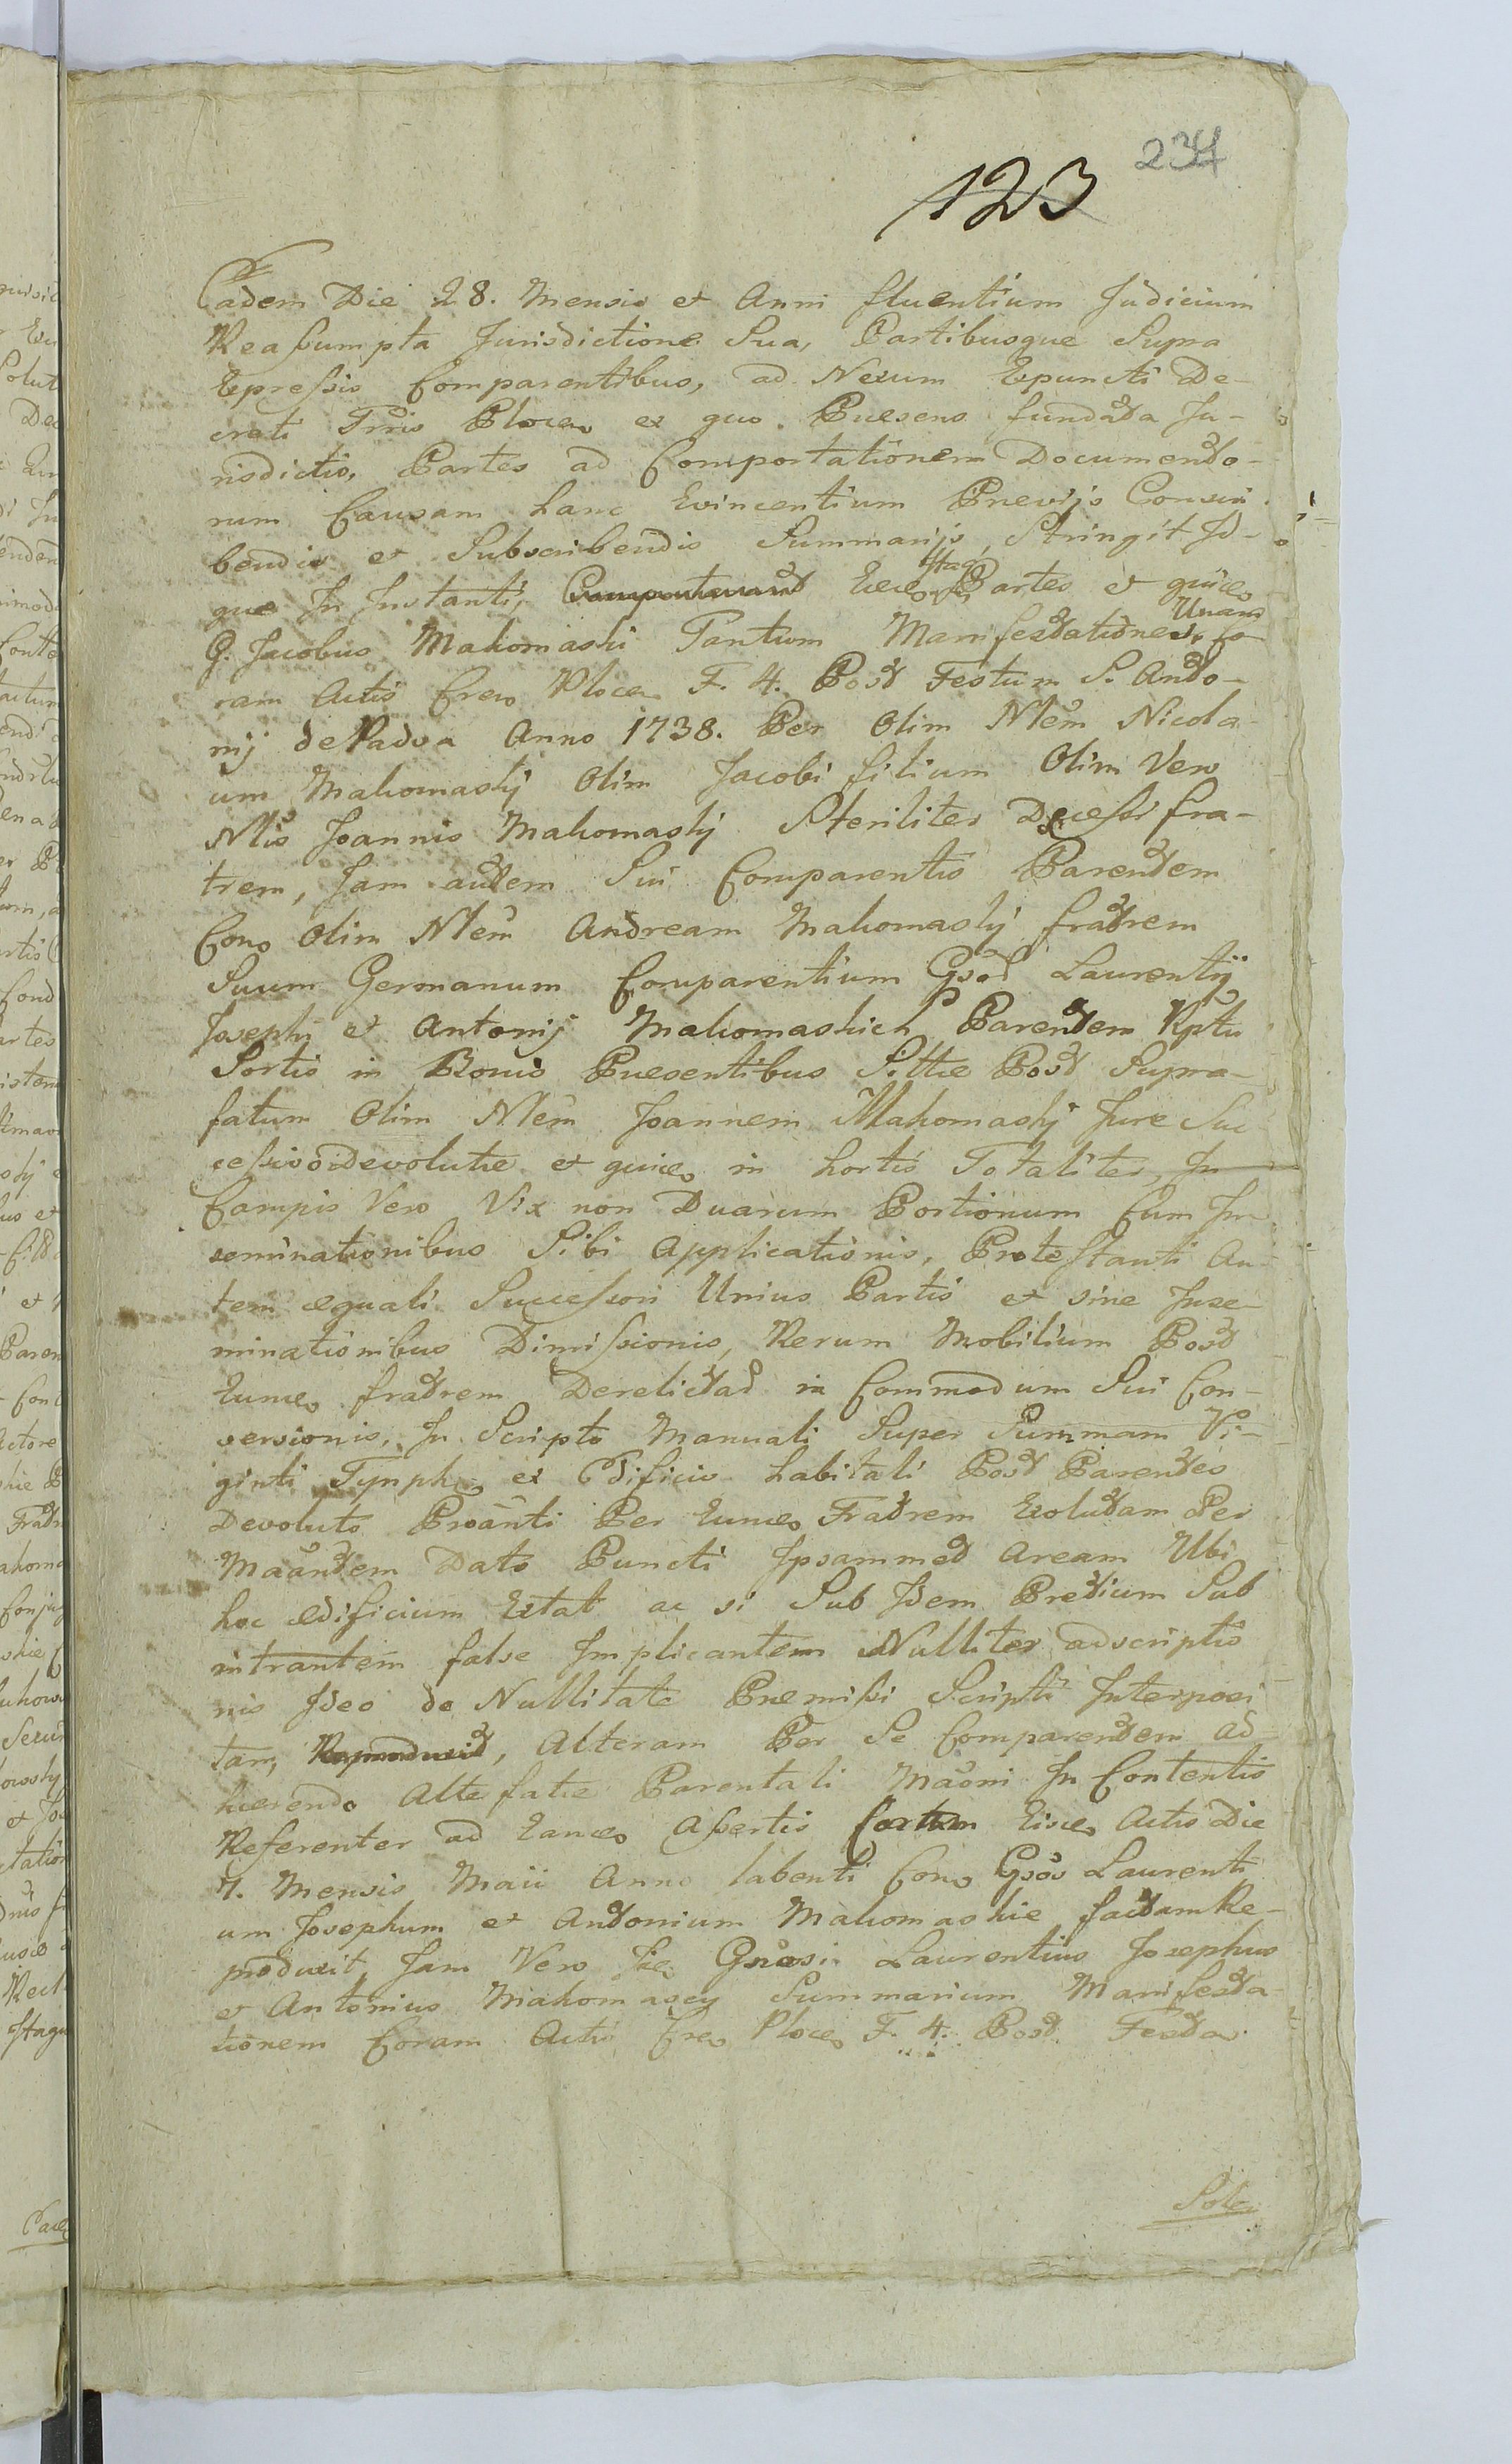 234
123
Eadem Die 28. Mensis et Anni fluentium Judicium
Reaſsumpta Jurisdictione Sua, Partibusque Supra
Expreſsis Comparentibus, ad Nexum Expuncti De-
creti Trris Plocen ex quo Praesens fundata Ju-
risdictio, Partes ad Comportationem Documento-
rum Causam hanc Evincentium Praevijs Conscri
bendis et Subscribendis Summarijs, Stringit Id-
que In Instanti, Partes et
Unam
G. Jacobus Makomaski Tantum Manifestationes, Co-
ram Actis Plocen F. 4. Post Festum S. Anto-
nij de Padva Anno 1738. Per Olim Nlem Nicola
um Makomaskj Olim Jacobi filium Olim Vero
Nlis Joannis Makomaskj Steriliter Deceſsi fra-
trem, Jam autem Sui Comparentis Parentem
Con. Olim Nlem Andream Makomaskj fratrem
Suum Germanum Comparentium Gsod Laurentij
Josephi et Antonij Makomaskich Parentem Rptu
Sortis in Bonis Praesentibus Sittae Post Supra-
fatum Olim Nlem Joannem Makomaskj Jure Suc
ceſsivo devolutae et in hortis Totaliter, In
Campis Vero Vix non Duarum Portionum Cum In
seminationibus Sibi Applicationis, Proteſtanti Au-
tem aequali Succeſsori Unius Partis et sine Inse-
minationibus Dimiſsionis, Rerum Mobilium Post
fratrem Derelictar in Commodum Sui Con-
versionis, In Scripto Manuali Super Summam Vi-
ginti Tynph. ex Edificio habitali Post Parentes
Devoluto Proanti Per Fratrem Exolutam Per
Maantem Dato Puncti Ipsammet Aream Ubi
hoc aedificium Extat ac si Sub Idem Pretium Sub
intrantem false Implicantem Nulliter adscriptio
nis Ideo de Nullitate Praemiſsi Scripti Interposi
tam, Reproduxit, Alteram Per Se Comparentem Ad-
haerendo Altefatae Parentali Maoni In Contentis
Referenter ad Aſsertis Coram Actis Die
7. Mensis Maii Anno labenti Con. Gsos Laurenti
um Josephum et Antonium Makomaskie factam Re-
produxit, Jam Vero Gnosi Laurentius Josephus
et Antonius Makomascy Summarium Manifesta-
tionem Coram Actis Plocen F. 4. Post Festa